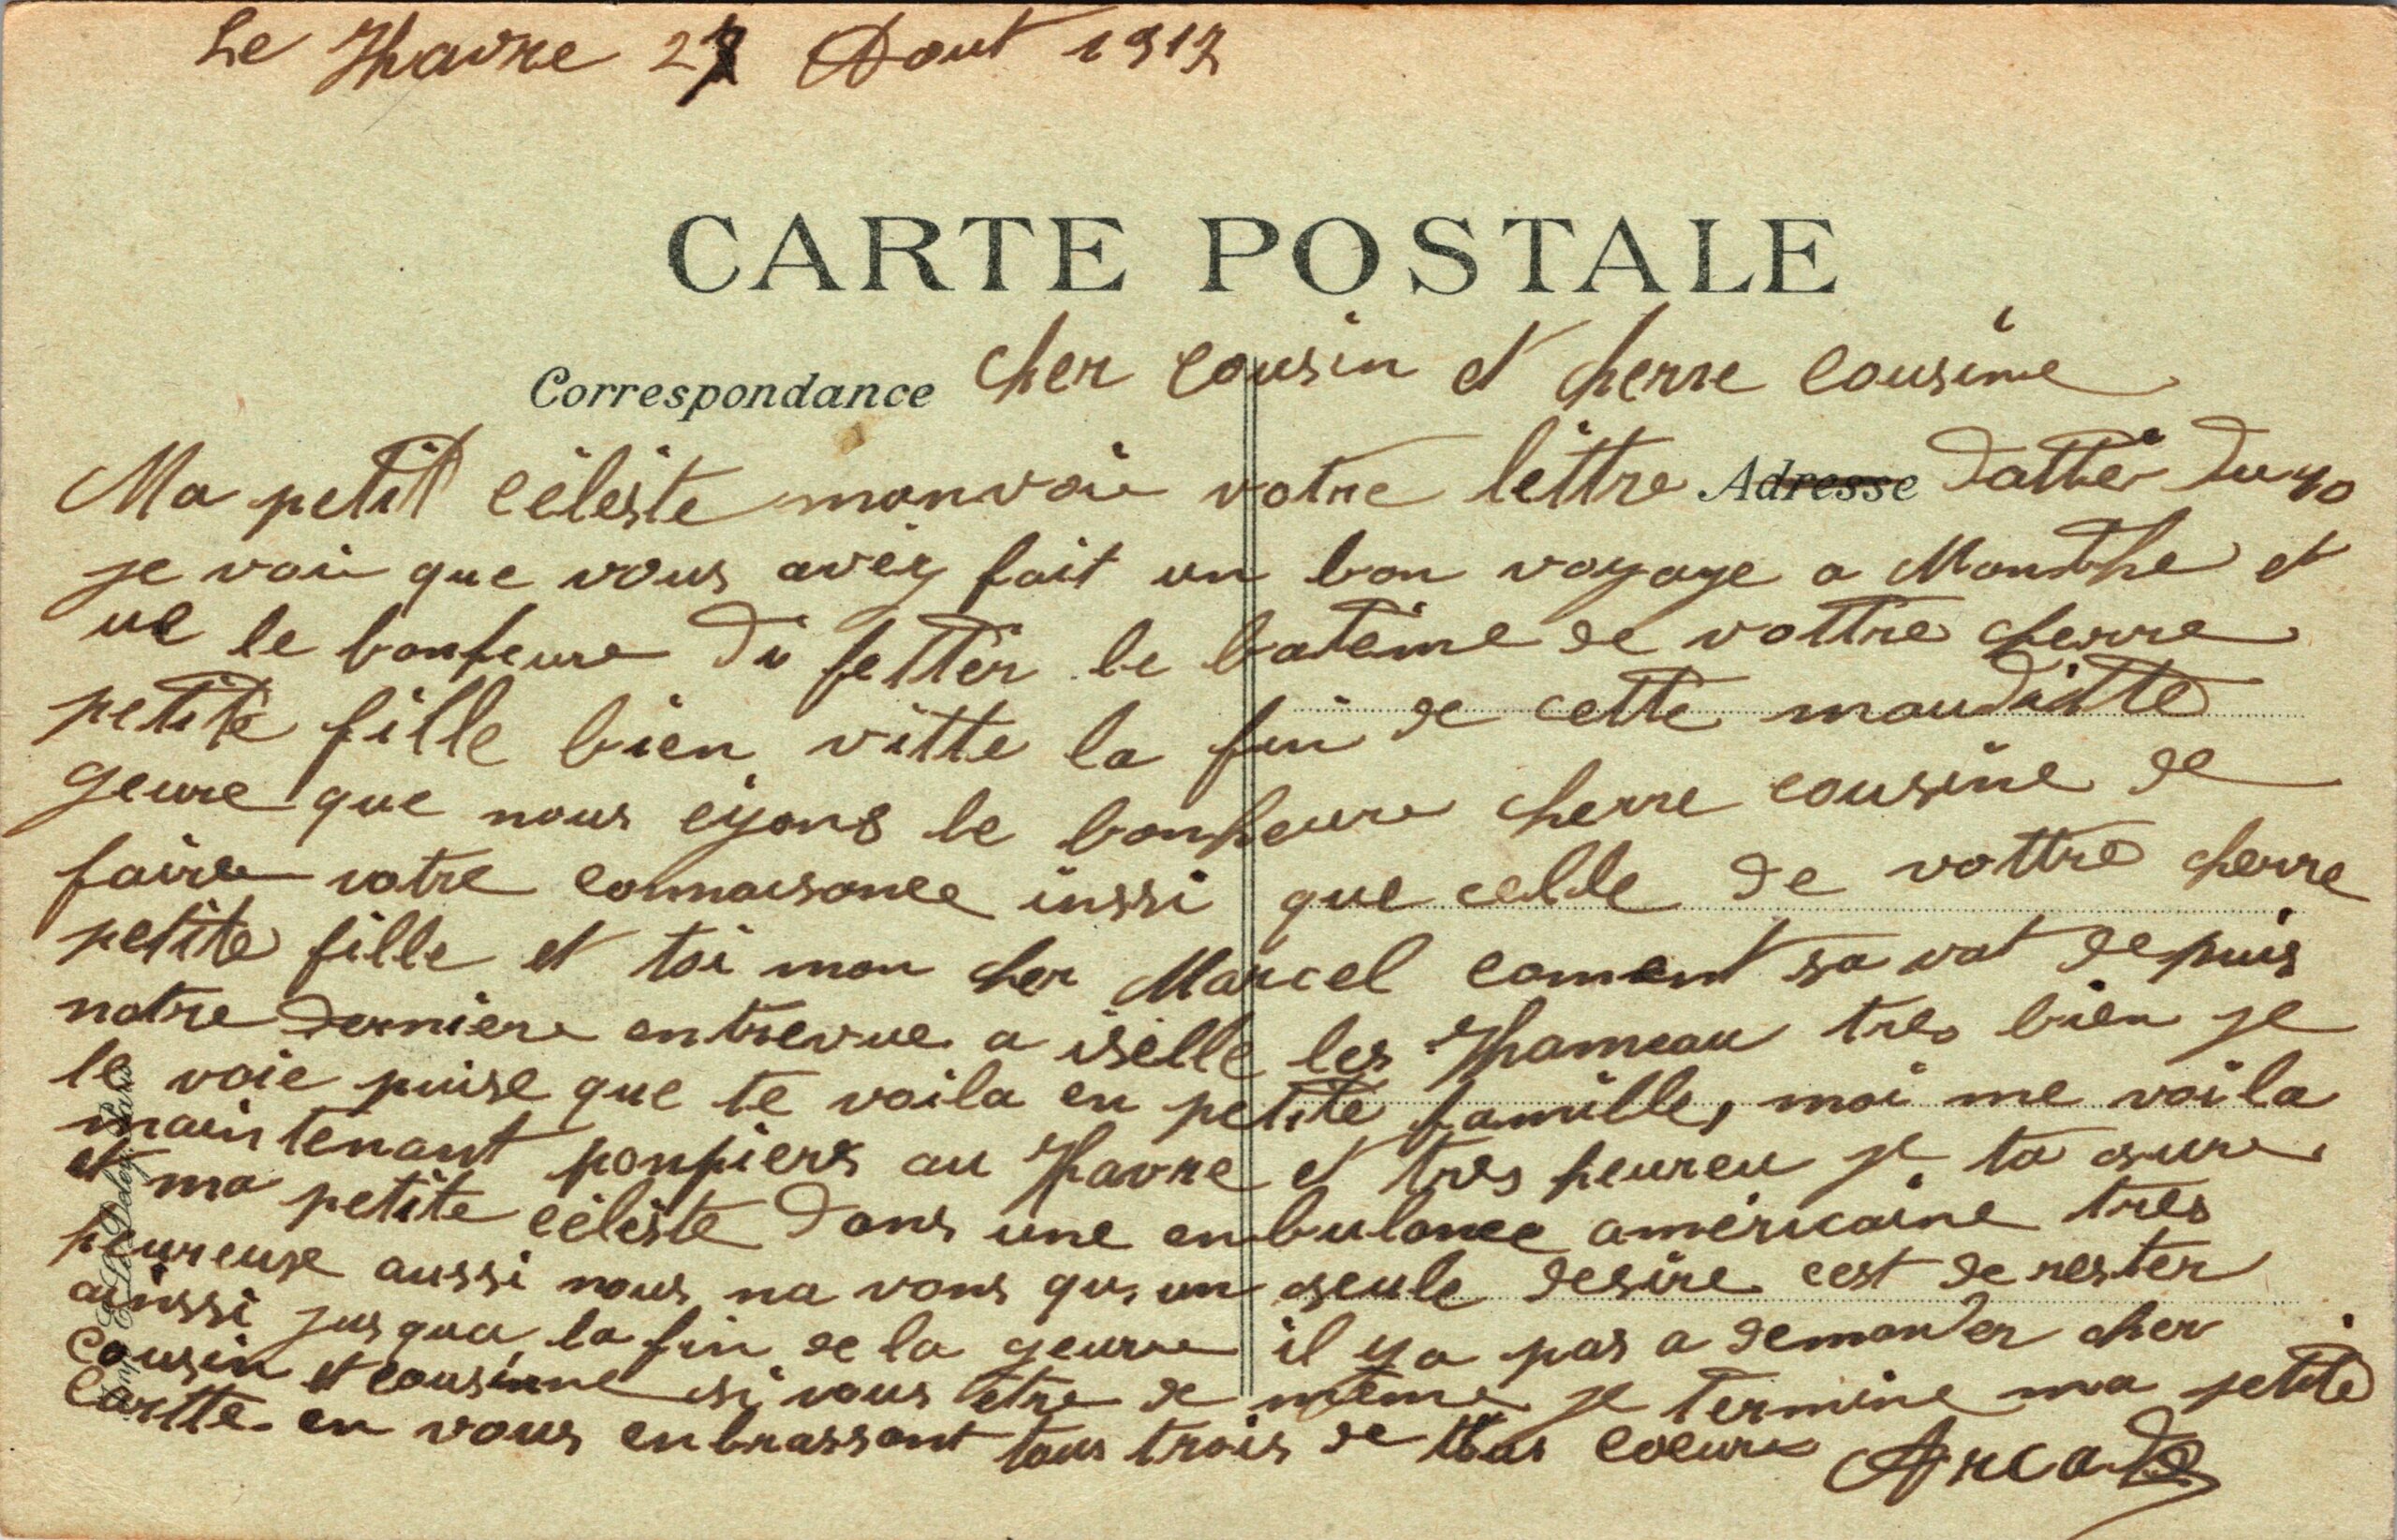 Le Havre 27 Aout 1917
CARTE POSTALE
Correspondance cher cousin et cherre cousine
Ma petit céléste monvoie votre lettre Adresse dattér du 10
je voie que vous avéz fait un bon voyage a et
ue le bonheure di fettér le batéime de vottre cherre
petite fille bien vitte la fin de cette maudiitte
geure que nous eyons le bonheure cherre cousine de
faire votre connaisance inssi que celle de vottre cherre
petite fille et toi mon cher Marcel coment sa vat depuis
notre derniere entrevue a iselle les Hameau tres bien je
le voie puise que te voila en petite famille, moi me voila
maintenant ponpiers au Havre et tres heureu je ta sure
et ma petite céléste dans une enbulance américaine tres
heureuse aussi nous na vons qu,un seule desire cest de rester
ainssi jusqua la fin de la geure il ya pas a demander cher
Cousin et cousinne si vous etre de méme je termine ma petite
Cartte en vous enbrassant tous trois de coeure Arcade